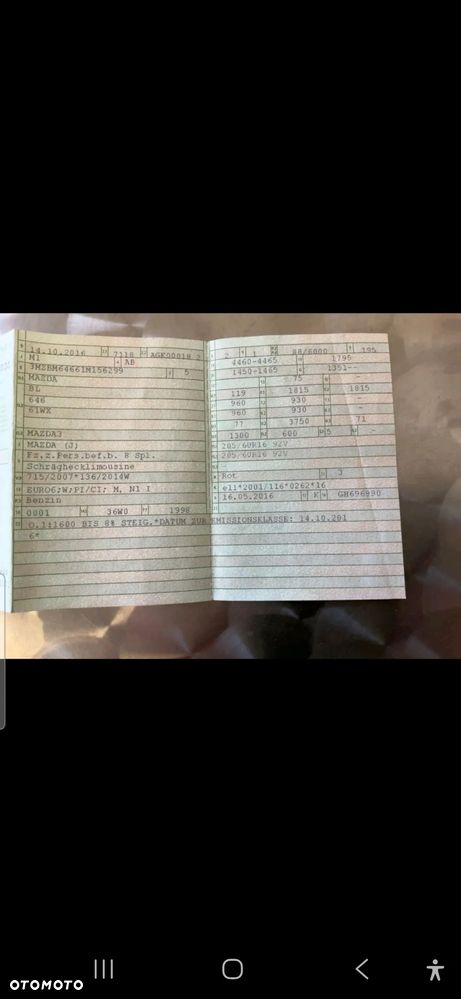 14.10.2016 7118 AGK00018 2
M1 AB
3MZBM64661M156299 5
MAZDA
BL
646
61WX
MAZDA3
MAZDA (J)
Fz.z.Pers.bef.b. 8 Spl.
Schräghecklimousine
715/2007*136/2014W
EURO6;W;PI/CI; M, N1 I
Benzin
0001 36W0 1998
O.1:1600 BIS 8% STEIG.*DATUM ZUR EMISSIONSKLASSE: 14.10.201
6*
2 1 88/6000 195
4460-4465 1795
1450-1465 1351--
75 -
119 1815 1815
960 930 -
960 930 -
77 3750 71
1300 600 5 -
205/60R16 92V
205/60R16 92V
Rot 3
e11*2001/116*0262*16
16.05.2016 K
OTOMOTO